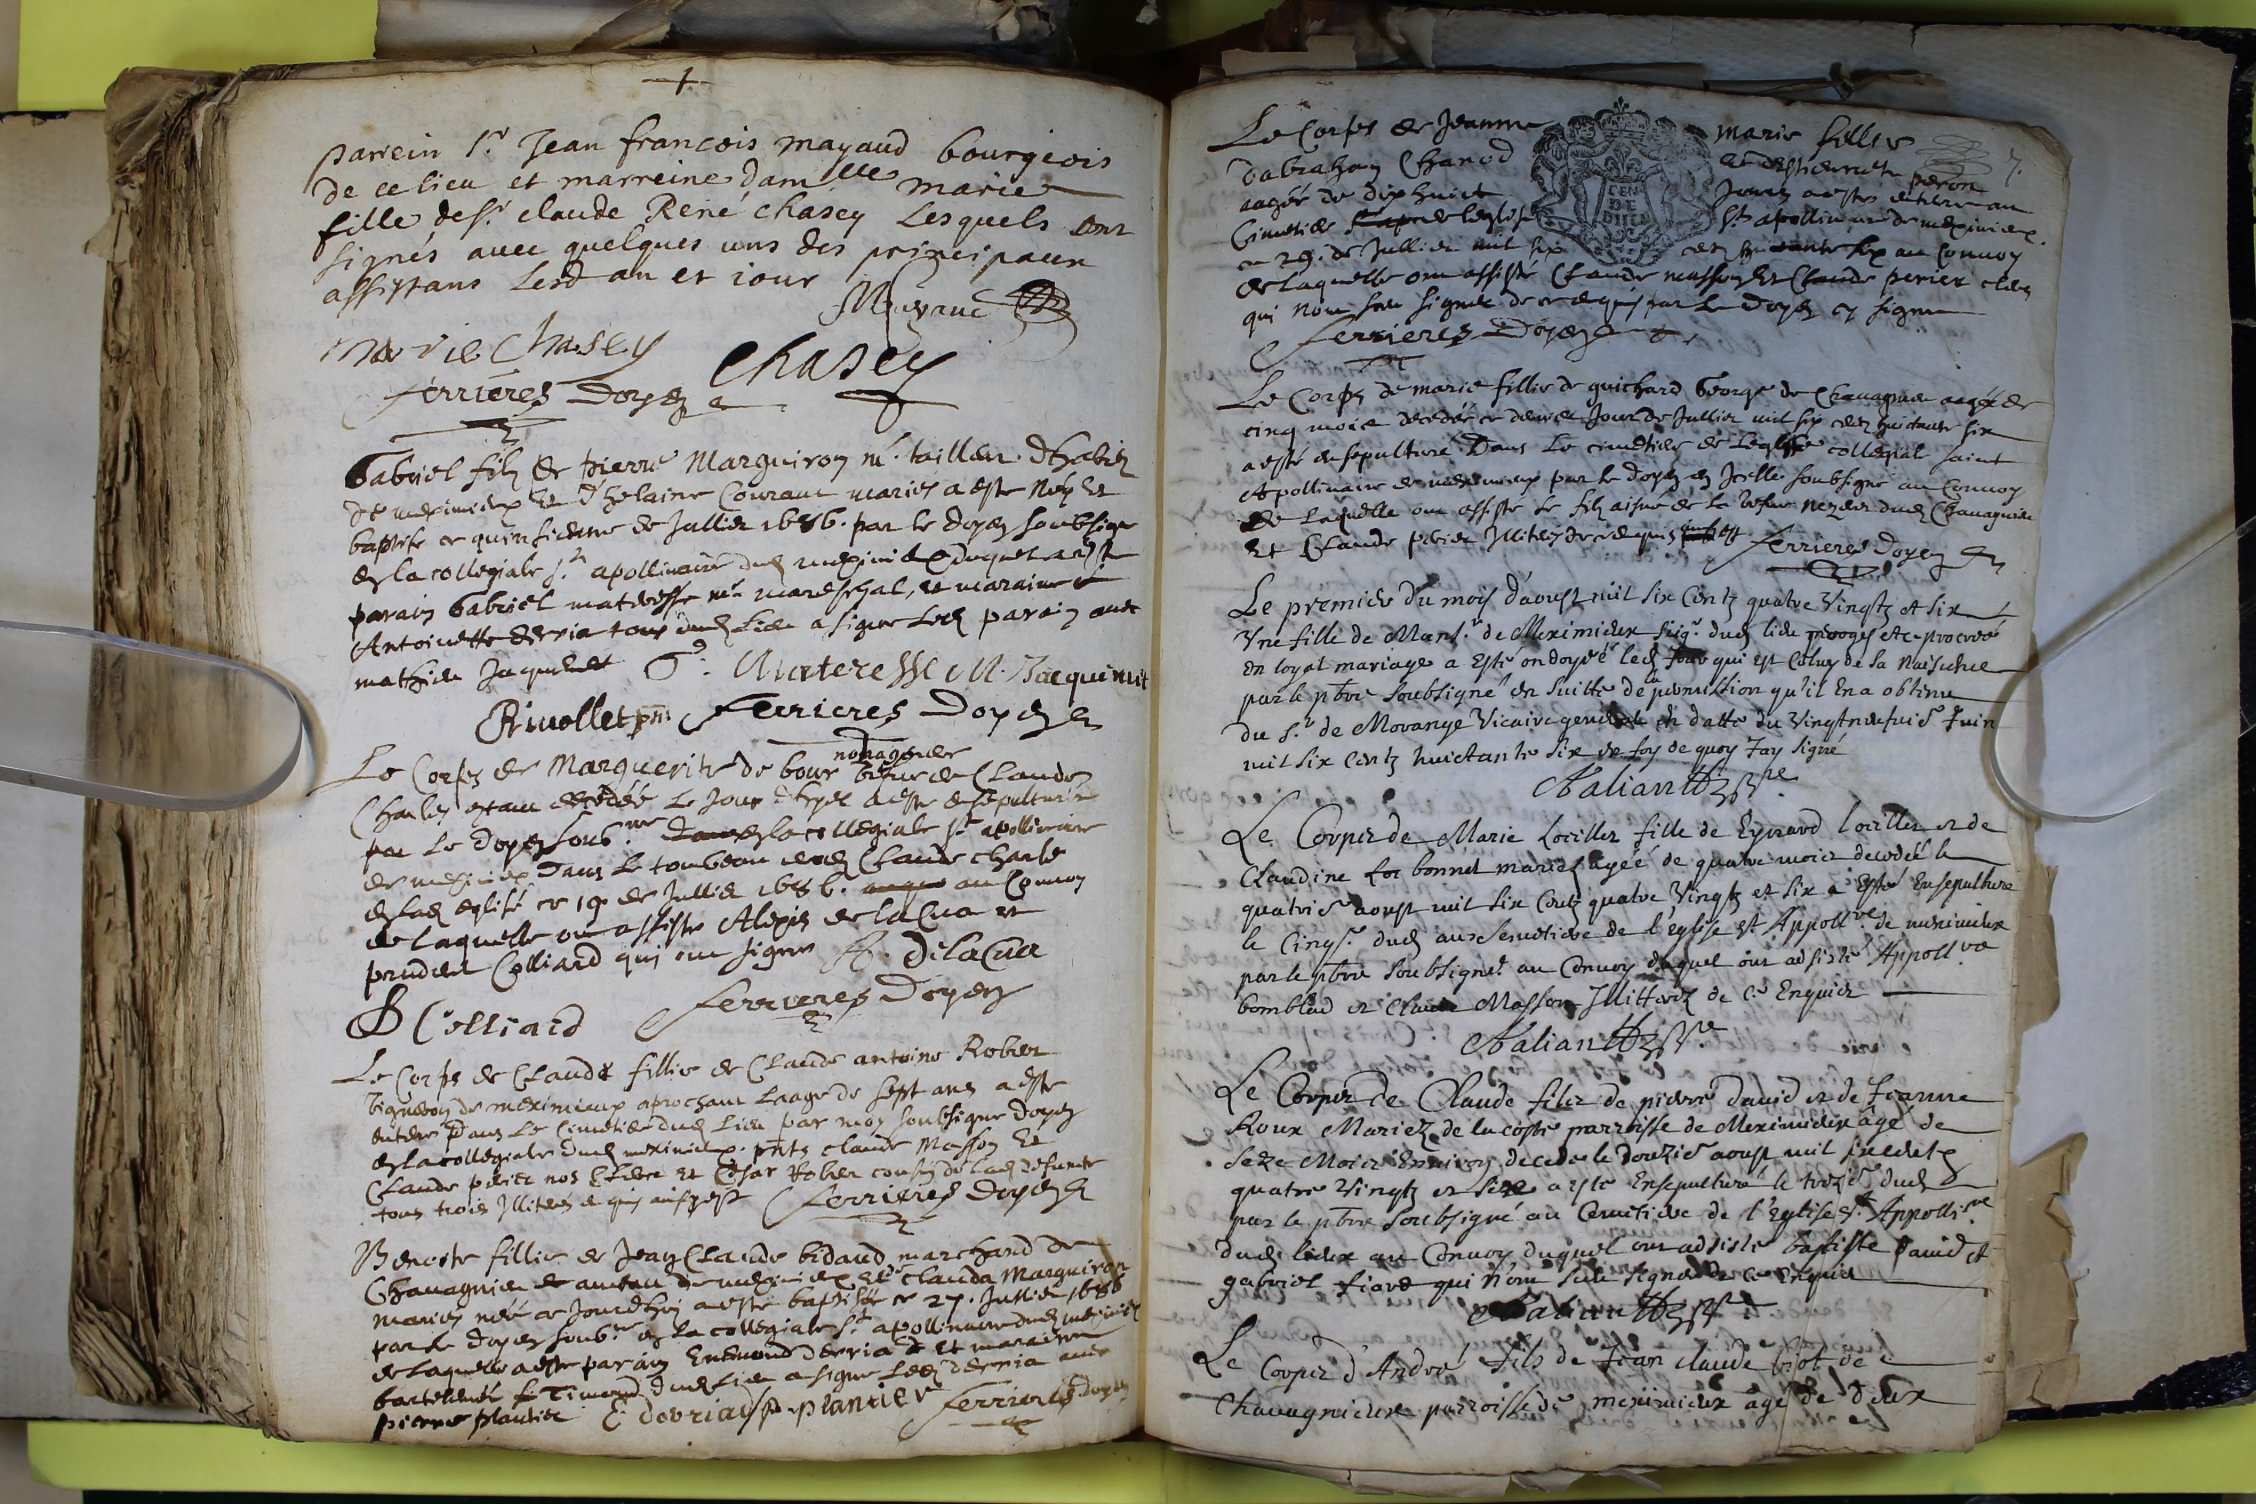 parrein Sr. Jean francois mayaud bourgeois
de ce lieu et marreine damlle marie
fille de Sr. claude René chasey Lesquels ont
signés avec quelques uns des principaux
assistans Lesd an et iour
Mayaud
marie Chasey
Chasey
ferrieres Doyen
Gabriel filz de pierre Marguiron me. tailleur dhabitz
de meximieux et dhelaine Courant mariés a esté
baptisé ce quinsieme de Jullier 1686. par le doyen soubsigne
en la collegiale St. apollinaire dud meximieux duquel a esté
parain Gabriel materesse me mareschal, et maraine
Antoinette derria tous dud Lieu a signe Led parain avec
mathieu Jaquemet G. Materesse M. Jacquemet
Rivollet ferrieres Doyen
nonagener
Le Corps de Marguerite de bour vefve de Claude
Charles decedée Le Jour dhyer a esté ensepulturé
par Le doyen soub.ne en la collegiale St apollinaire
de meximieux Dans Le tombeau dud Claude charle
en lad eglise ce 19 de Jullier 1686. au Convoy
de laquelle ont assisté Alexis de la Cua et
prudent Colliard qui ont signe A. DelaCua
B Colliard ferrieres Doyen
Le Corps de Claude fillie de Claude antoine Rober
vigneron de meximieux aprochant Laage de sept ans a esté
enterré Dans Le Cimetier dud Lieu par moy soubsigne doyen
en la collegiale dud meximieux. pnts claude Masson et
Claude perier nos Clercs et Cesar Rober cousin de lad defunte
tous trois Illiterés ferrieres doyen
Benoiste fillie de Jean Claude bidaud marchand de
Chavagnieu de meximieux et clauda Marguiron
mariés née ce Jourdhuy a esté baptisée ce 27. Jullier 1686
par Le doyen soub.ne en la collegiale St. apollinaire dud meximieux
de laquelle a esté parain Enemond derria et maraine
dud Lieu a signe Led derria avec
pierre plantier E derriaz p. plantier ferrieres doyen
Le Corps de Jeanne marie fillie
dabraham Chanod et destiennette peron
aagée de dix huict Jours a esté enterré au
Cimetier de leglise St. apollinaire de meximieux.
ce 29. de Jullier mil six cent huictante six au Convoy
de Laquelle ont assisté Claude masson et Claude perier clers
qui nont sceu signer de ce requis par Le Doyen cy signe
ferrieres Doyen
Le Corps de marie fillie de guichard George de Chavagnieu aagée de
cinq mois decedée ce dernier Jour de Jullier mil six cent huictante six
a esté ensepulturé Dans Le cimetier de Leglise collegial saint
Apollinaire de meximieux par le doyen en Icelle soubsigne au Convoy
de Laquelle ont assisté Le filz aisné de la vefve dud Chavagnieu
et Claude perier Illiterés de ce requis ferrieres doyen
Le premier du mois daoust mil six Centz quatre Vingtz et six
Vne fille de Mons.r de Meximieux seig.r dud lieu procréé
en loyal mariage a esté ondoyée led Jour qui est Celuy de sa naissance
par le pbre soubsigné en suitte de la permission qu'il en a obtenu
du Sr. de Morange Vicaire general en datte du Vingtneufuie Juin
mil six Centz huictante six en foy de quoy Jay signé
Le Corps de Marie Loriller fille de Eynard loriller et de
Claudine for bonnet mariez agéé de quatre moix decedéé le
quatrie aoust mil six Centz quatre Vingtz et six a esté Ensepulture
le Cinq.e dud au Semetiere de l'eglise St Appoll.re de meximieux
par le pbre soubsigné au Convoy duquel ont adsisté Appoll.re
bomblad et Claude Masson Illitterez de Ce Enquier
Le Corps de Claude filz de pierre david et de Jeanne
Roux Mariez de la coste parroisse de Meximieux âgé de
Seze Moix Environ decedé le douzie aoust mil six centz
quatre Vingtz et six a esté Ensepulturé le treze dud
par le pbre soubsigné au Cemetiere de l'Eglise St. Appolli.re
dud lieux au Convoy duquel ont adsisté baptiste david et
gabriel fiard qui n'ont sceu signer de Ce Enquis
Le Corps d'André fils de Jean claude biot de
Chavagnieux parroisse de meximieux agé de deux